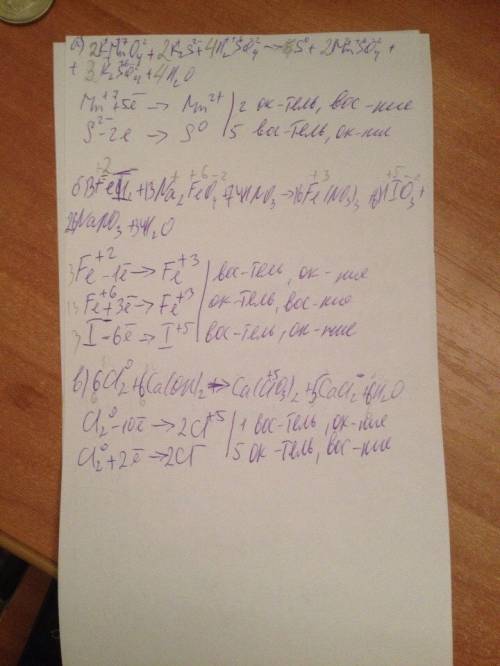 а) 2KMnO4 + 2K2S + 4H2SO4 → 5S + 2MnSO4 +
+ 3K2SO4 + 4H2O
Mn+5e → Mn2+ | 2 ок-тель, вос-ние
S2-2e → S0 | 5 вос-тель, ок-ние
б) +13Na2FeO4 +74HNO3 → 16Fe(NO3)3 +
NaNO3 + H2O
3 Fe+2 -1e → Fe+3 | вос-тель, ок-ние
13 Fe+6 +3e → Fe+3 | ок-тель, вос-ние
3 I -6e → I+5 | вос-тель, ок-ние
в) 6Cl2 + 6Ca(OH)2 → Ca(ClO3)2 + 5CaCl2 + 6H2O
Cl20 -10e → 2Cl+5 | 1 вос-тель, ок-ние
Cl20 +2e → 2Cl- | 5 ок-тель, вос-ние